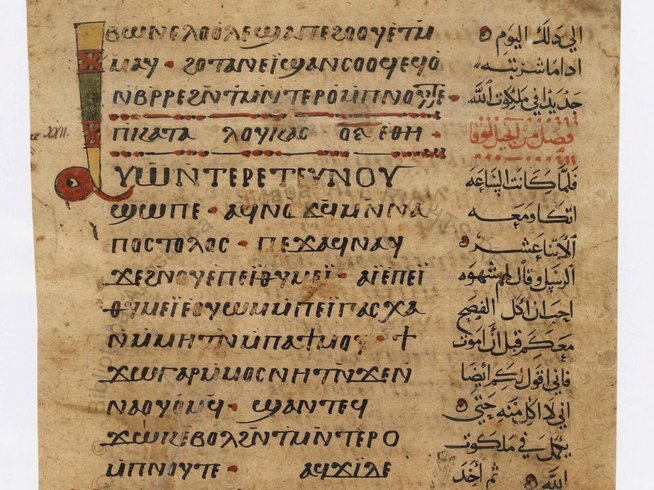 ⲃⲱⲛⲉⲗⲟⲟⲗⲉϣⲁⲡⲉϩⲟⲟⲩⲉⲧⲙ̄
ⲙⲁⲩ · ϩⲟⲧⲁⲛⲉⲓ̈ϣⲁⲛⲥⲟⲟϥⲉϥⲟ
ⲛ̄ⲃⲣ̄ⲣⲉϩⲛ̄ⲧⲙⲛ̄ⲧⲉⲣⲟⲙ̄ⲡⲛⲟⲩⲧⲉ ·
ⲡⲕⲁⲧⲁ ⲗⲟⲩⲕⲁⲥ ⲟⲋ ⲉⲑⲏ ·
ⲁⲩⲱⲛ̄ⲧⲉⲣⲉⲧⲉⲩⲛⲟⲩ
ϣⲱⲡⲉ · ⲁϥⲛⲟϫϥ̄ⲙⲛ̄ⲛⲁ
ⲡⲟⲥⲧⲟⲗⲟⲥ · ⲡⲉϫⲁϥⲛⲁⲩ
ϫⲉϩⲛ̄ⲟⲩⲉⲡⲉⲓⲑⲩⲙⲉⲓ̈ · ⲁⲓⲉⲡⲉⲓ̈
ⲑⲩⲙⲉⲓ̈ⲉⲟⲩⲱⲙⲙ̄ⲡⲉⲓ̈ⲡⲁⲥⲭⲁ
ⲛⲙ̄ⲙⲏⲧⲛ̄ⲙ̄ⲡⲁϯⲙⲟⲩ · ϯ
ϫⲱⲅⲁⲣⲙ̄ⲙⲟⲥⲛⲏⲧⲛ̄ϫⲉⲛ
ⲛⲁⲟⲩⲟⲙϥ̄ · ϣⲁⲛⲧⲉϥ
ϫⲱⲕⲉⲃⲟⲗϩⲛ̄ⲧⲙⲛ̄ⲧⲉⲣⲟ
ⲙ̄ⲡⲛⲟⲩⲧⲉ · ⲁϥϫⲓⲇⲉ
الي ذلك اليوم
اذا ما شربته
جديدا في ملكوت الله
فصل من انجيل لوقا
فلما كانت الساعه
اتكا ومعه
الاثنا عشر
الرسل وقال لهم شهوه
احب ان اكل الفصح
معكم قبل ان اموت
فاني اقول لكم ايضا
اني لا اكل منه حتي
يكمل في ملكوت
الله ثم اخذ